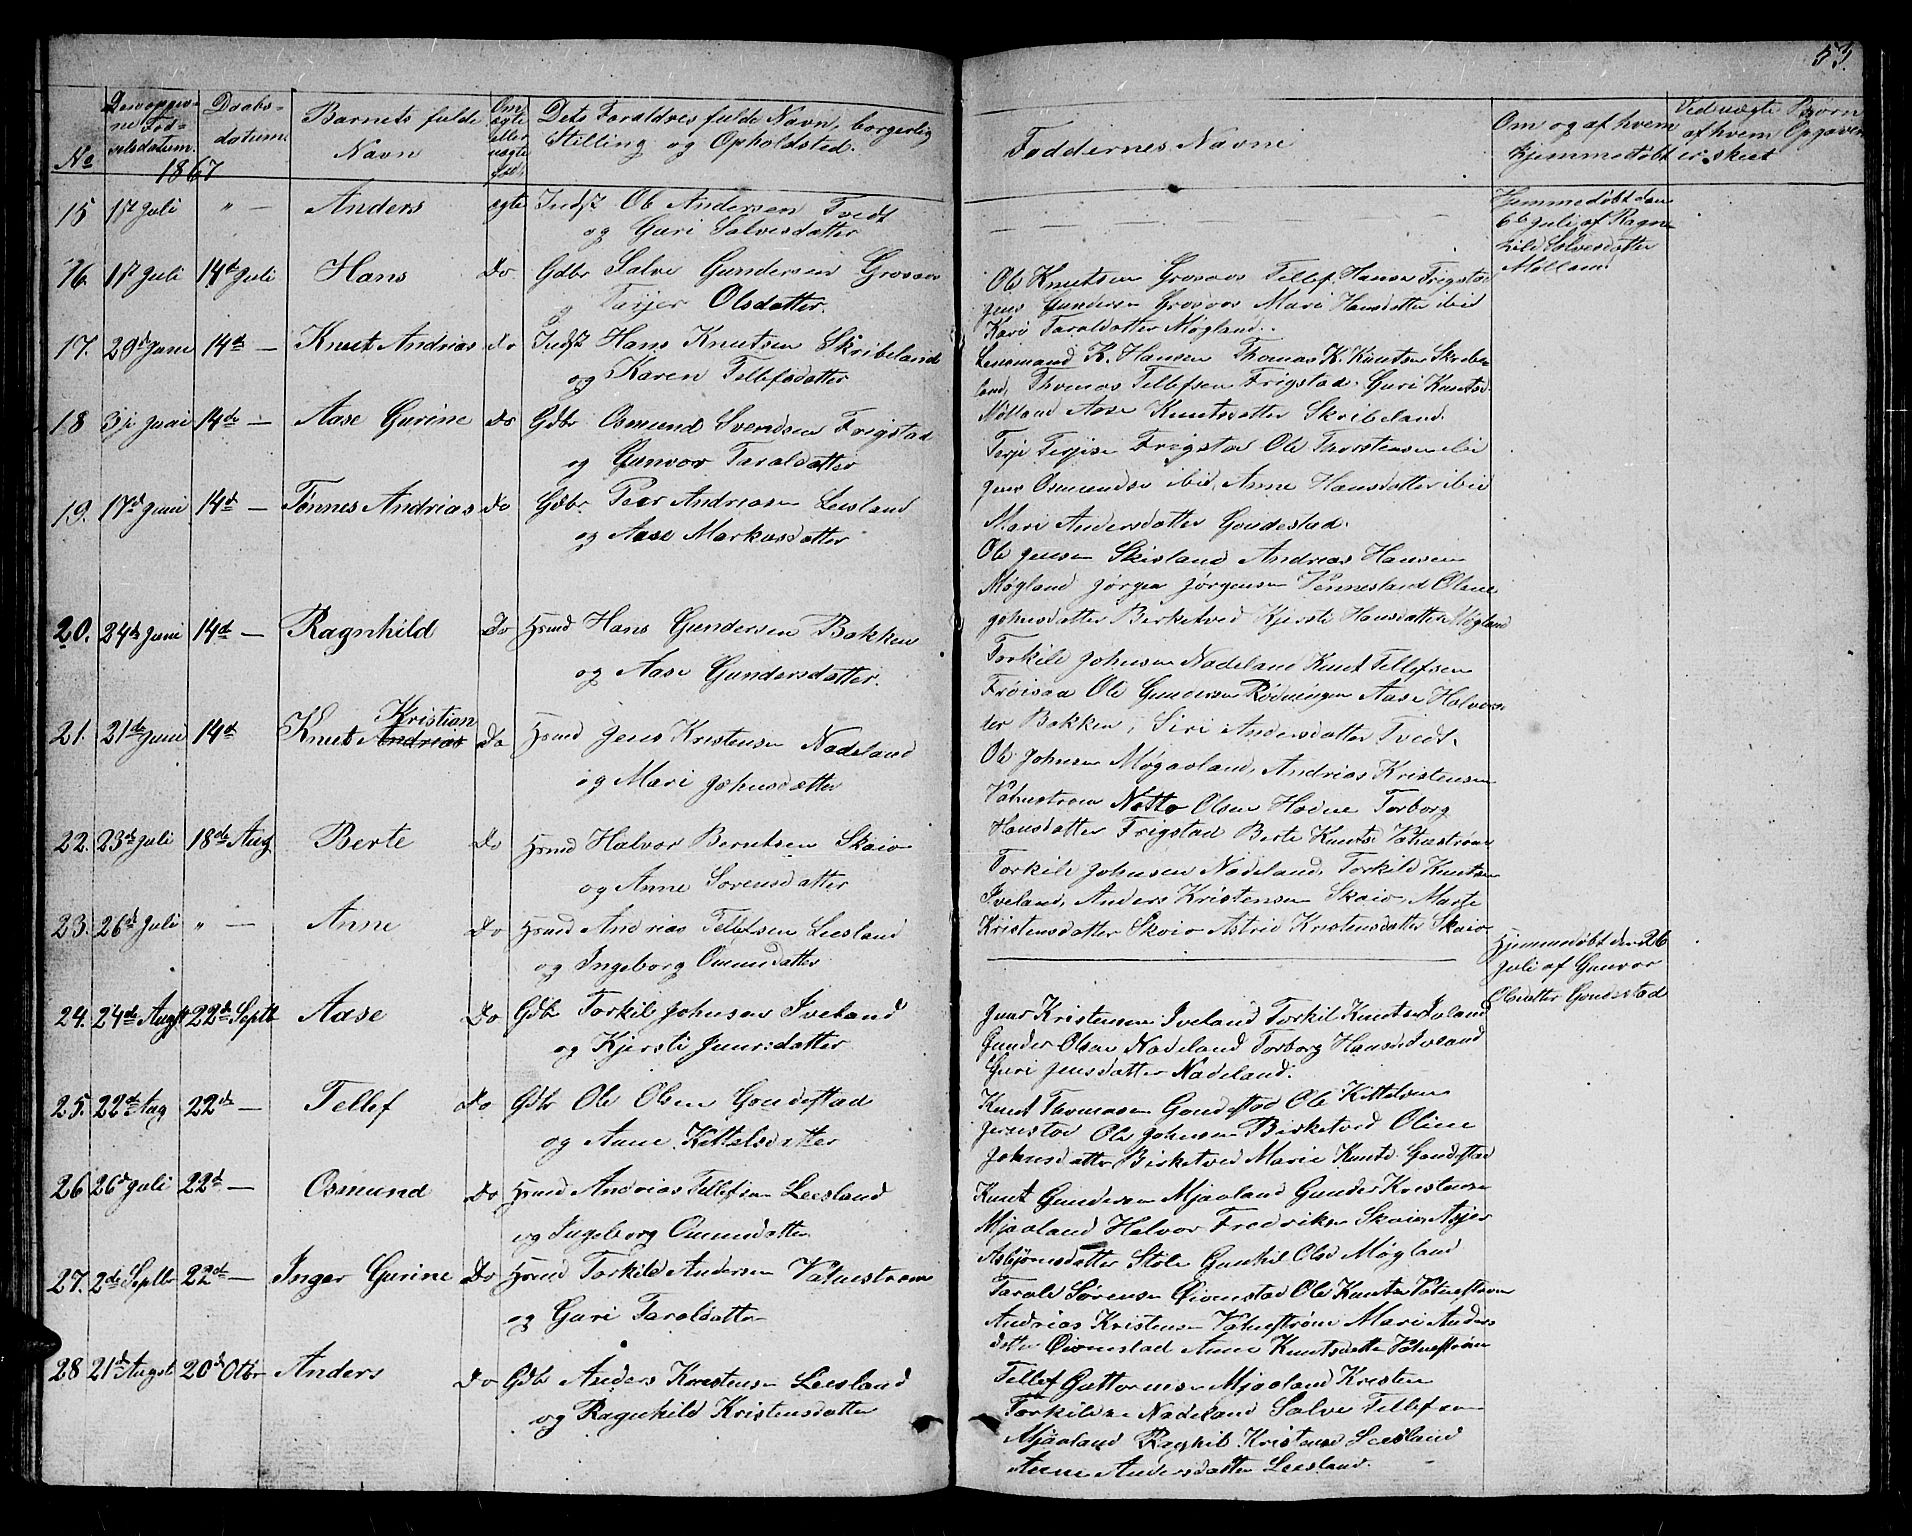 53.
No
Den opgivne Fødselsdatum.
Daabsdatum.
Barnets fulde Navn
Om ægte eller uægte
Dets Foraldres fulde Navn, borgerlig Stilling og Opholdsted.
Faddernes Navne
Om og af hvem hjemmedøbt
Ved uægte Børn af hvem Opgaven er skeet
1867
15 1st Juli " — Anders ægte Indst Ole Andersen Tvedt
og Guri Salvesdatter
Hjemmedøbt den
6te Juli af Ragn-
hild Salvesdatter
16. 1st Juli 14de Juli Hans Do Gdbr Salve Gundersen Grovaas
og Tarjer Olsdatter.
Ole Knutsen Grosaas Tellef Hansen Frigstad
Jens Gundersen Grosaas Mari Hansdatter ibid
Karo Taraldatter Møgland.
17. 29de Juni 14de — Knut Andrias do Indst Hans Knutsen Skribeland
og Karen Tellefsdatter
Lensmand K. Hansen Thomas K. Knutsen Skribe-
land, Thomas Tellefsen Frigstad. Guri Knutsd
Aase Knutsdatter Skribeland
18 Juni 14de — Aase Gurine Do Gdbr Osmund Svendsen Frigstad
og Gunvor Taraldatter
Terje Terjese Frigstad Ole Thorstensen ibi
Jens Osmundse ibid, Anne Hansdatter ibid
Mari Andersdatter Gondestad.
19. 17de Juni 14de — Tønnes Andrias Do Gdbr. Peer Andriasen Leesland
og Aase Markusdatter
Ole Jensen Skisland Andrias Hansen
Møgland Jørgen Jørgensen Vennesland Olene
Johnsdatter Birketved Kjersti Hansdatter Møgland
20. 24de Juni 14de — Ragnhild Do Hsmd Hans Gundersen Bakken
og Aase Gundersdatter.
Torkild Johnsen Nadeland Knut Tellefsen
Frøisaa Ole Gundersen Rødningen Aase Halvors-
der Bakken, Siri Andersdatter Tvedt.
21. 21de Juni 14de Knut Kristian Andrias Do Hsmd Jens Kristensen Nadeland
og Mari Johnsdatter
Ole Johnsen Møgaoland, Andrias Kristensen
Vatnestrøm Netto Olsen Hodne Torborg
Hansdatter Frigstad Berte Knutsd Vatnestrøm
22. 23de Juli 18de Aug Berte Do Hsmd Halvor Berntsen Skaio
og Anne Sørensdatter
Torkild Johnsen Nadeland, Torkild Knutsen
Iveland, Anders Kristensen Skaio, Marte
Kristensdatter Skaio Astrid Kristensdatter Skaio
23. 26de Juli " — Anne Do Hsmd Andrias Tellefsen Leesland
og Ingeborg Omundatter
Hjemmedøbt den 26
Juli af Gunvor
Olsdatter Gondestad
24. 24de Augst 22de Septb Aase Do Gdb Torkil Johnsen Iveland
og Kjersti Jensdatter
Jens Kristensen Iveland Torkil Knutsen Iveland
Gunder Olsen Nadeland Torborg Hansd Iveland
Guri Jensdatter Nadeland.
25. 22de Aug 22de — Tellef Do Gdbr Ole Olsen Gondestad
og Anne Kittelsdatter
Knut Thomasen Gondestad Ole Kittelsen
Ole Johnsen Birketved Oline
Johnsdatter Birketved Marie Knutsd Gondestad
26 26de Juli 22de — Osmund Do Hsmd Andrias Tellefsen Leesland
og Ingeborg Omundatter
Knut Gundersen Mjaaland Gunder Kristensen
Mjaaland Halvor Fredriksen Skaio Asjer
Asbjørnsdatter Stole Gunhil Olsd Møgland
27. 2de Septbr 22de — Inger Gurine Do Hsmd Torkild Andersen Vatnestrøm
og Guri Taraldatter
Tarald Sørensen Øivnestad Ole Knutsen Vatnestrøm
Andrias Kristensen Vatnestrøm Mari Anders-
datter Øivnestad Anne Knutsdatter Vatnestrøm
28 21de Augst 20de Otbr Anders Do Gdb Anders Kristensen Leesland
og Ragnhild Kristensdatter
Tellef Guttormsen Mjaaland Kristen
Torkildsen Nadeland Salve Tellefsen
Mjaaland Raghil Kristensd Leesland
Anne Andersdatter Leesland.